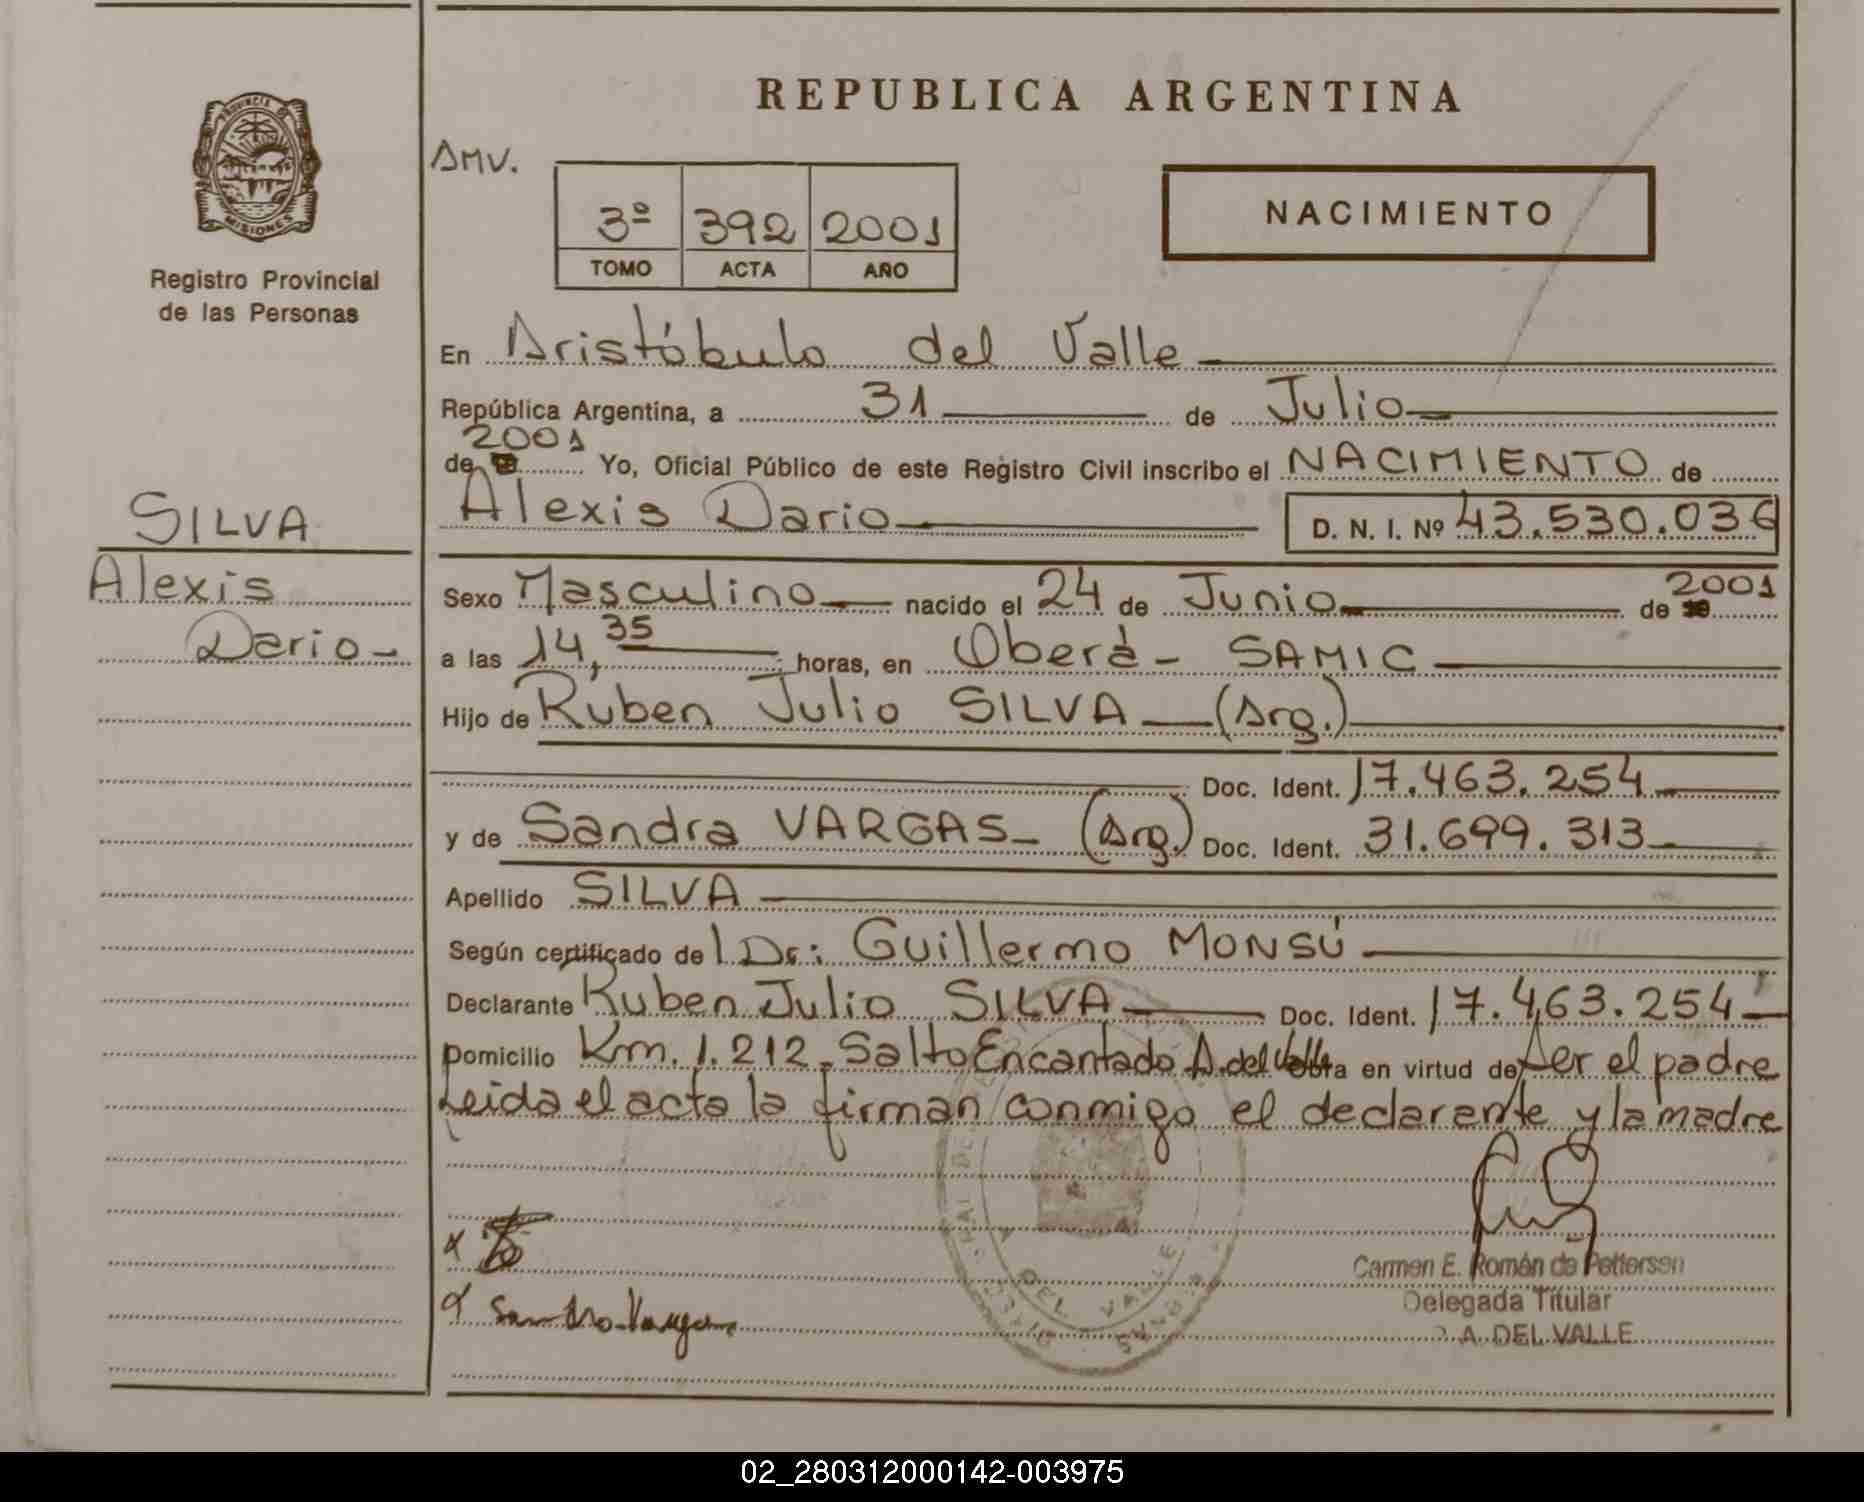 REPUBLICA ARGENTINA
PROVINCIA DE
MISIONES
Registro Provincial
de las Personas
AMV.
3º 392 2001
TOMO ACTA AÑO
NACIMIENTO
En Aristóbulo del Valle
República Argentina, a 31 de Julio
2001
de Yo, Oficial Público de este Registro Civil inscribo el NACIMIENTO de
Alexis Dario D. N. I. Nº 43.530.036
SILVA
Alexis
Dario -
Sexo Masculino nacido el 24 de Junio de 2001
a las 14,35 horas, en Oberá - SAMIC
Hijo de Ruben Julio SILVA (Arg.)
Doc. Ident. 17.463.254
y de Sandra VARGAS (Arg.) Doc. Ident. 31.699.313
Apellido SILVA
Según certificado del Dr: Guillermo MONSÚ
Declarante Ruben Julio SILVA Doc. Ident. 17.463.254
Domicilio Km. 1.212 - Salto Encantado A. del Valle Obra en virtud de ser el padre
Leida el acta la firman conmigo el declarante y la madre
x
x Sandra Vargas
DEL VALLE
Carmen E. Román de Pettersen
Delegada Titular
A. DEL VALLE
02_280312000142-003975